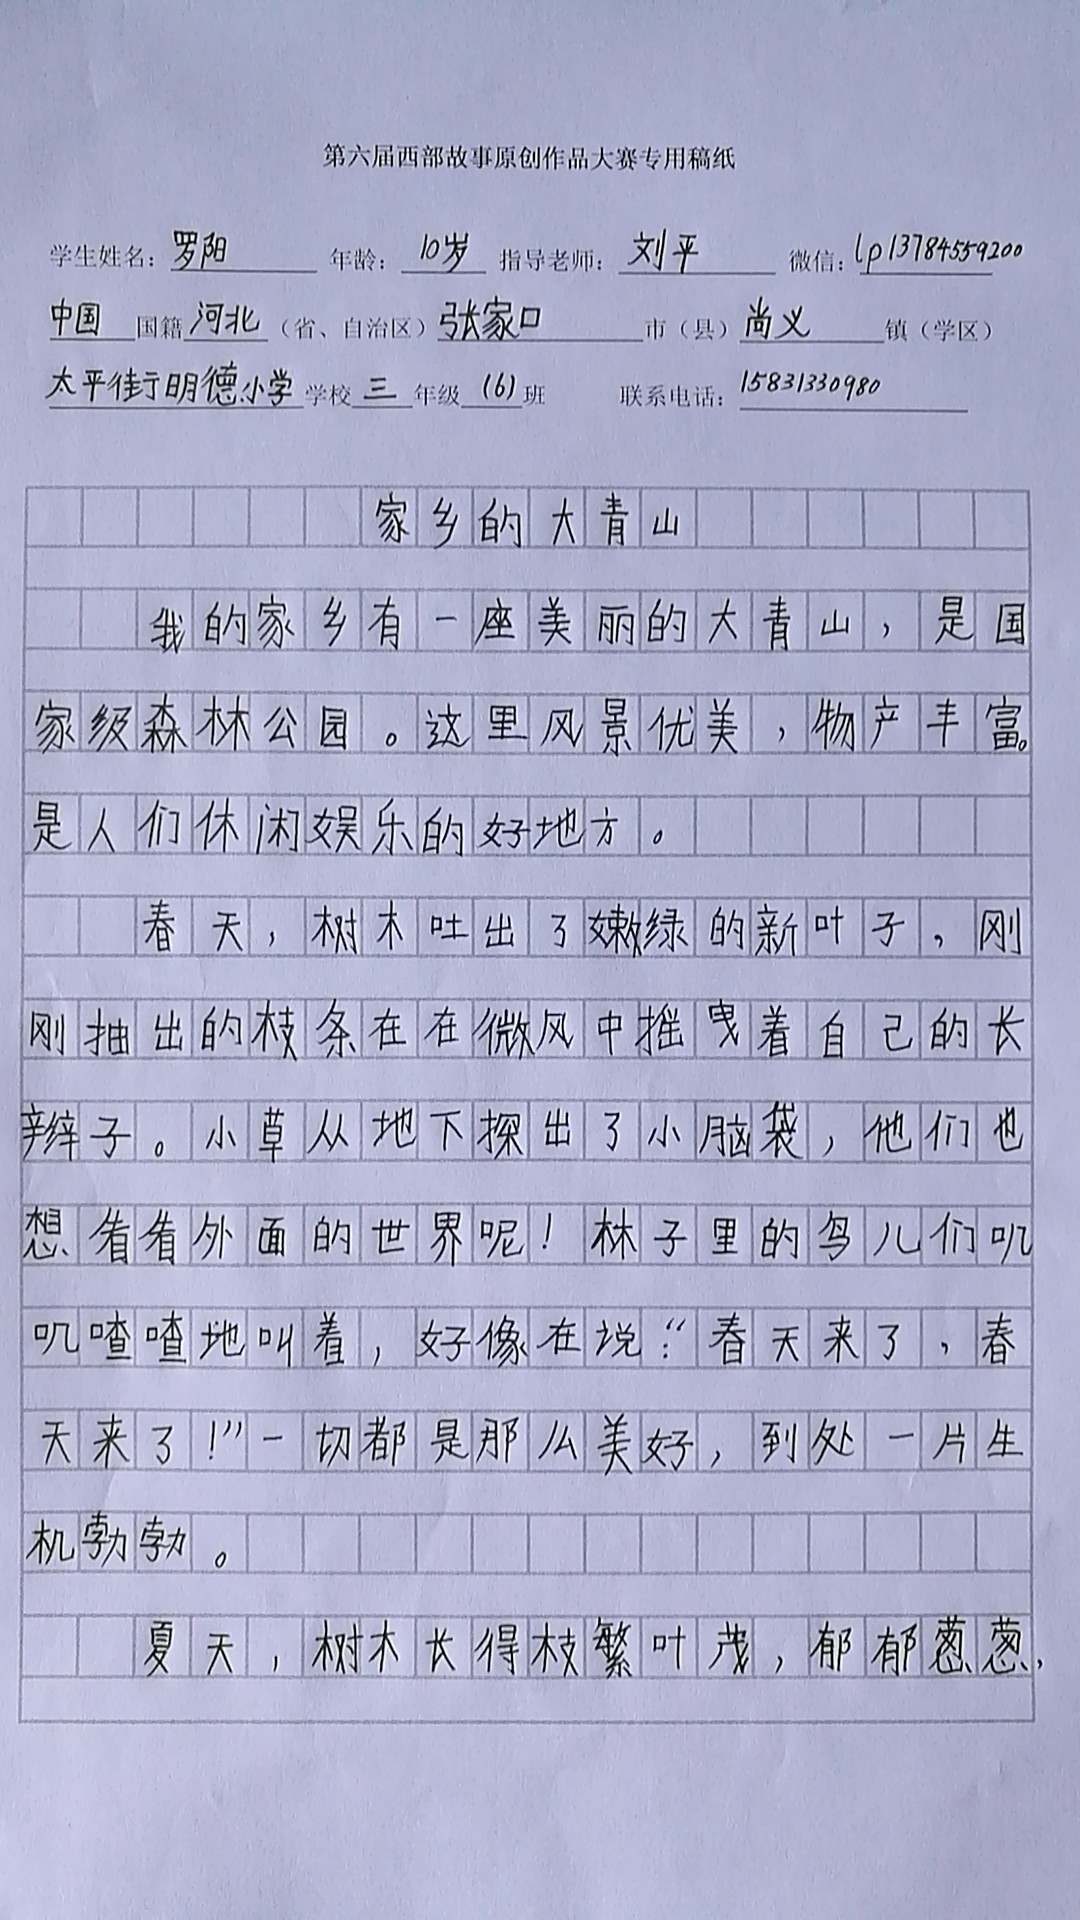 第六届西部故事原创作品大赛专用稿纸
学生姓名：罗阳 年龄：10岁 指导老师：刘平 微信：lp13784559200
中国国籍河北（省、自治区）张家口市（县）尚义镇（学区）
太平街明德小学学校三年级（6）班 联系电话：15831330980
家乡的大青山
我的家乡有一座美丽的大青山，是国
家级森林公园。这里风景优美，物产丰富。
是人们休闲娱乐的好地方。
春天，树木吐出了嫩绿的新叶子，刚
刚抽出的枝条在在微风中摇曳着自己的长
辫子。小草从地下探出了小脑袋，他们也
想看看外面的世界呢！林子里的鸟儿们叽
叽喳喳地叫着，好像在说：“春天来了，春
天来了！”一切都是那么美好，到处一片生
机勃勃。
夏天，树木长得枝繁叶茂，郁郁葱葱，